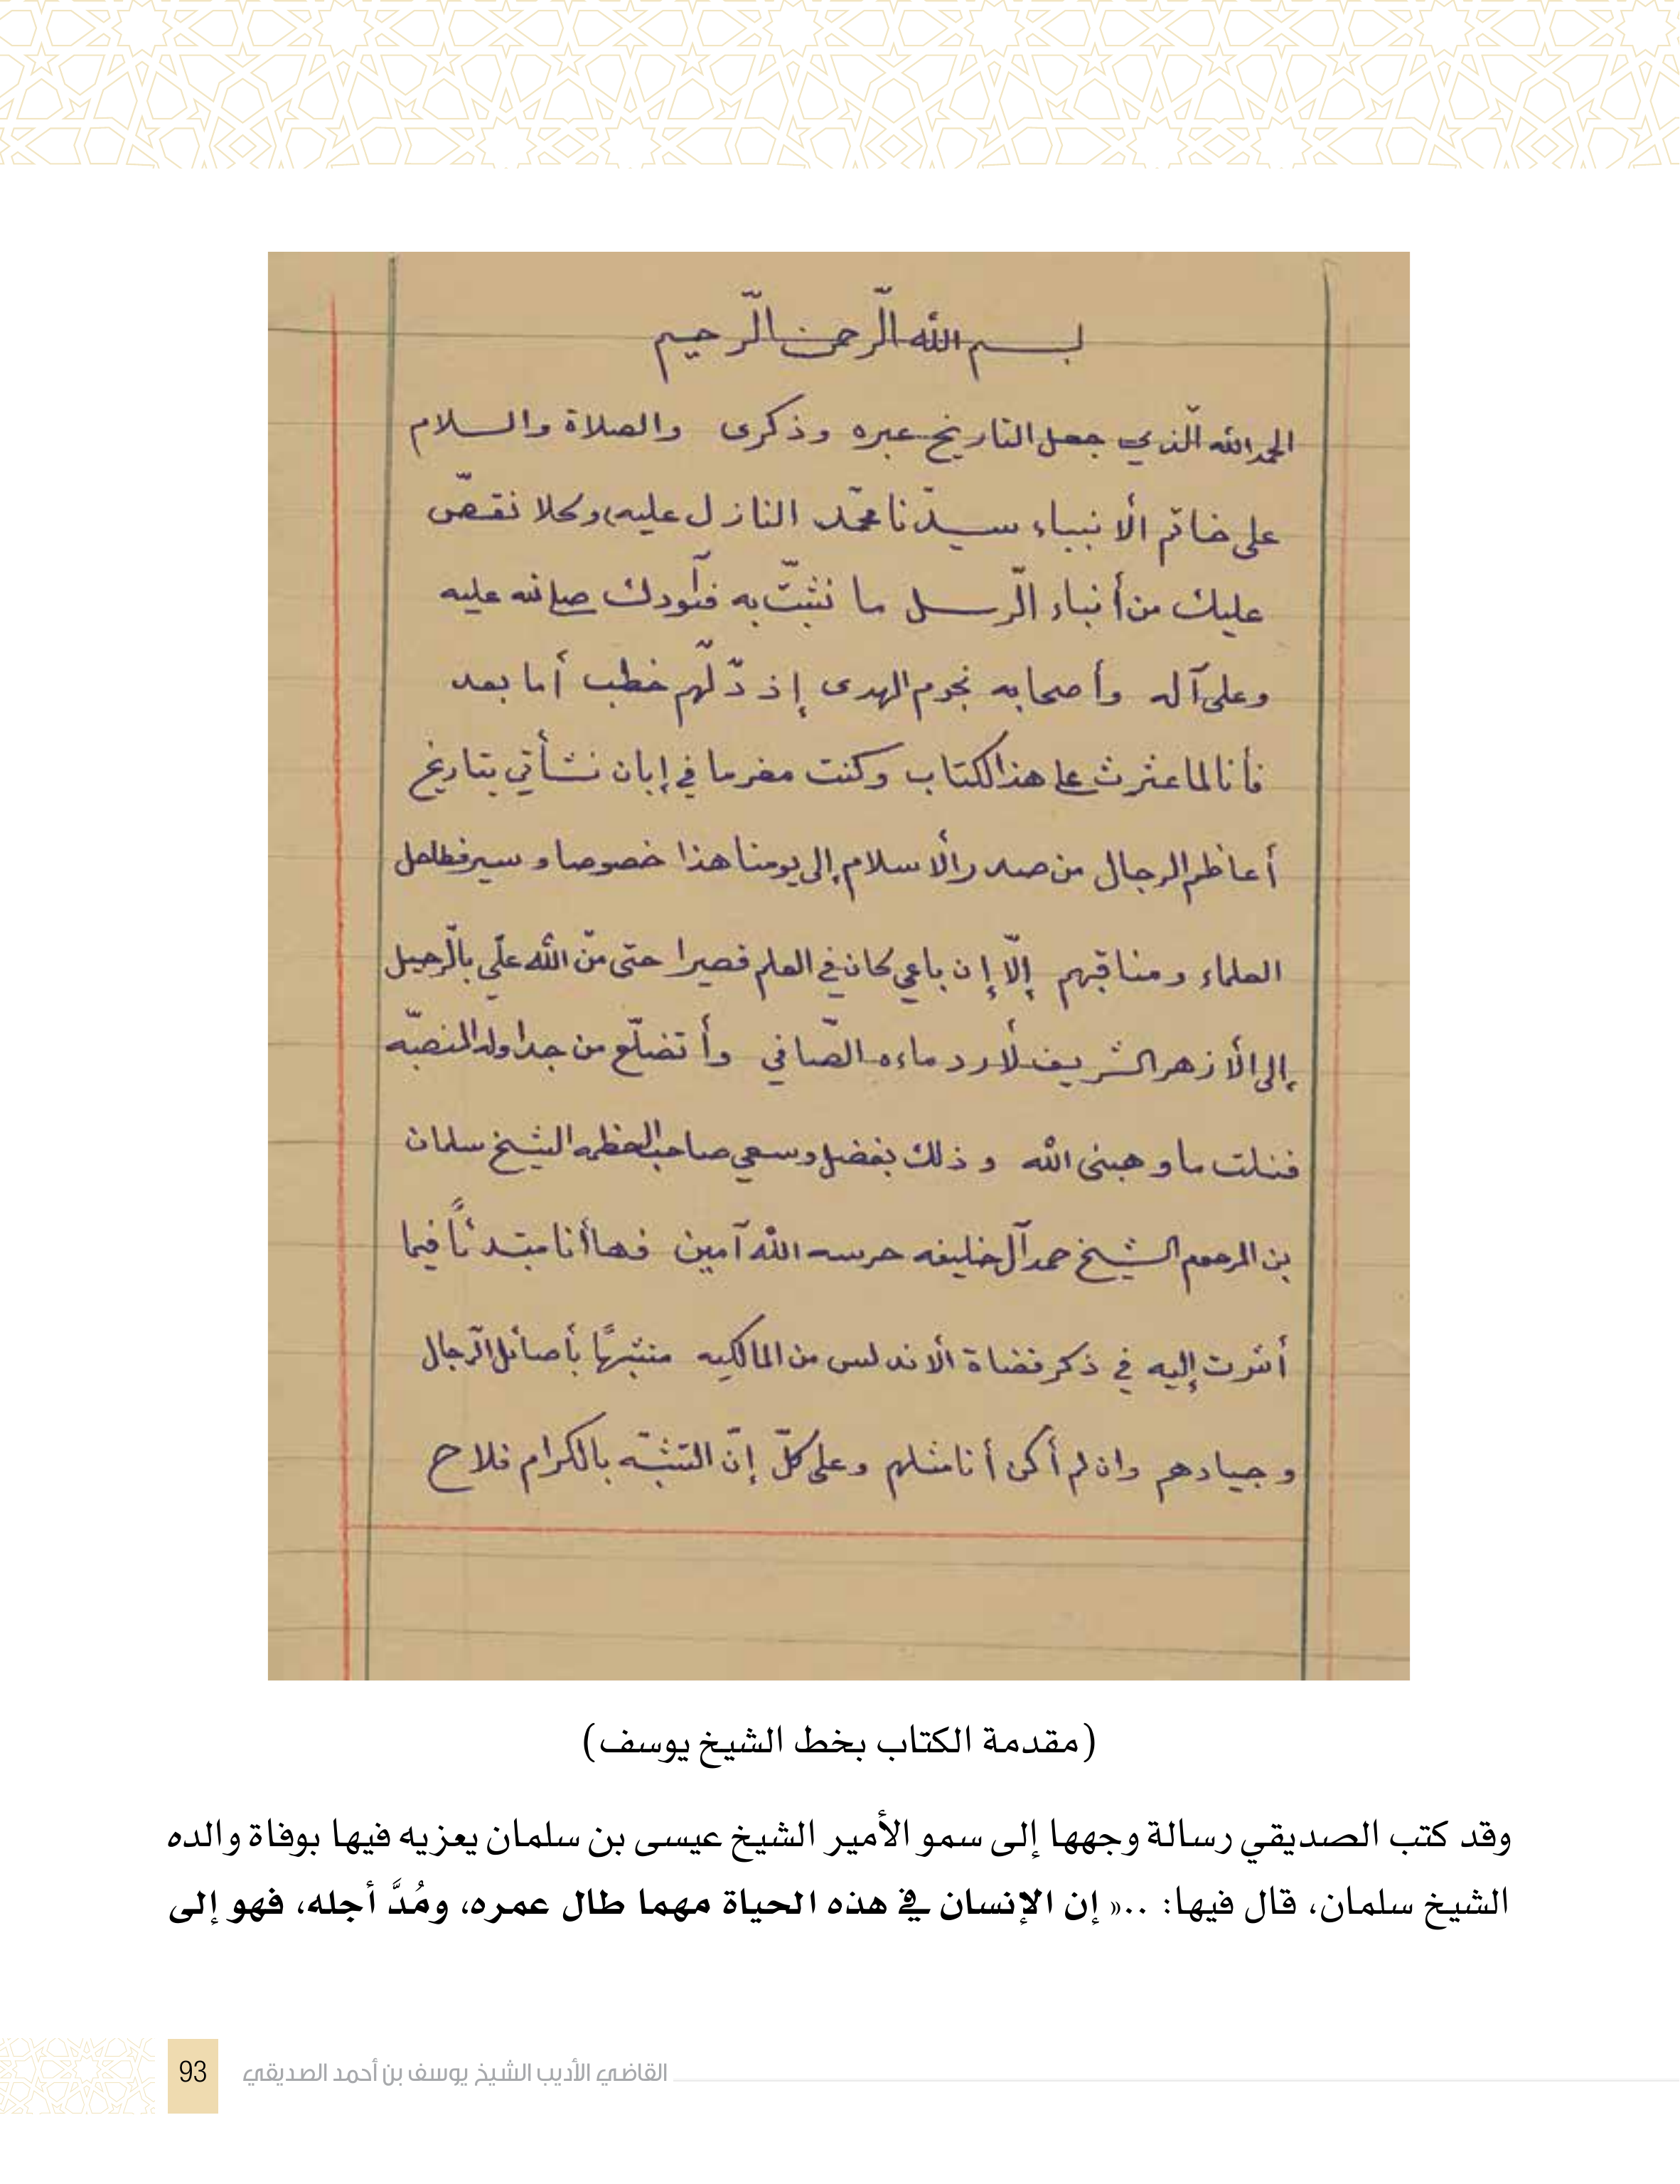 بسم الله الرّحمن الرّحيم
الحمد لله الّذي جعل التاريخ عبره وذكرى والصلاة والسلام
على خاتم الأنبياء سيدّنا محمّد النازل عليه، وكلا نقصّ
عليك من أنباء الرّسل ما نثبّت به فؤادك صلى الله عليه
وعلى آله وأصحابه نجوم الهدى إذ دلّهم خطب أما بعد
فأنا لما عثرت على هذا الكتاب وكنت مغرما في إبان نشأتي بتاريخ
أعاظم الرجال من صدر الأسلام إلى يومنا هذا خصوصا وسير فطاحل
العلماء ومناقبهم إلّا إن باعي كان في العلم قصيرا حتى منّ الله علّي بالّرحيل
إلى الأزهر الشريف لأرد ماءه الصّافي وأتضلّع من جداوله المنصبّه
فنلت ما وهبنى الله وذلك بفضل وسعي صاحب العظمه الشيخ سلمان
بن المرحوم الشيخ حمد آل خليفه حرسه الله آمين فها أنا مبتدئاً فيما
أشرت إليه في ذكر قضاة الأندلس من المالكيه متشبهًا بأصائل الرّجال
وجيادهم وان لم أكن أنا مثلهم وعلى كلّ إنّ التشبّه بالكرام فلاح
(مقدمة الكتاب بخط الشيخ يوسف)
وقد كتب الصديقي رسالة وجهها إلى سمو الأمير الشيخ عيسى بن سلمان يعزيه فيها بوفاة والده
الشيخ سلمان، قال فيها: ..« إن الإنسان في هذه الحياة مهما طال عمره، ومُدَّ أجله، فهو إلى
القاضي الأديب الشيخ يوسف بن أحمد الصديقي 93